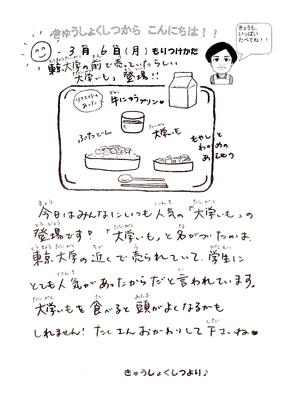 きゅうしょくしつから こんにちは！！
きょうも、
いっぱい
たべてね！！
3月6日(月) もりつけかた
東京大学の前で売っていたらしい
大学いも、登場！！
リクエストの
あった
牛にゅうプリン♡
ぶたどん
大学いも
もやしと
わかめの
今日はみんなにいつも人気の「大学いも」の
登場です？「大学いも」と名がついたのは、
東京大学の近くで売られていて、学生に
とても人気があったからだと言われています。
大学いもを食べると頭がよくなるかも
しれません！たくさんおかわりして下さいね♥
きゅうしょくしつより♪